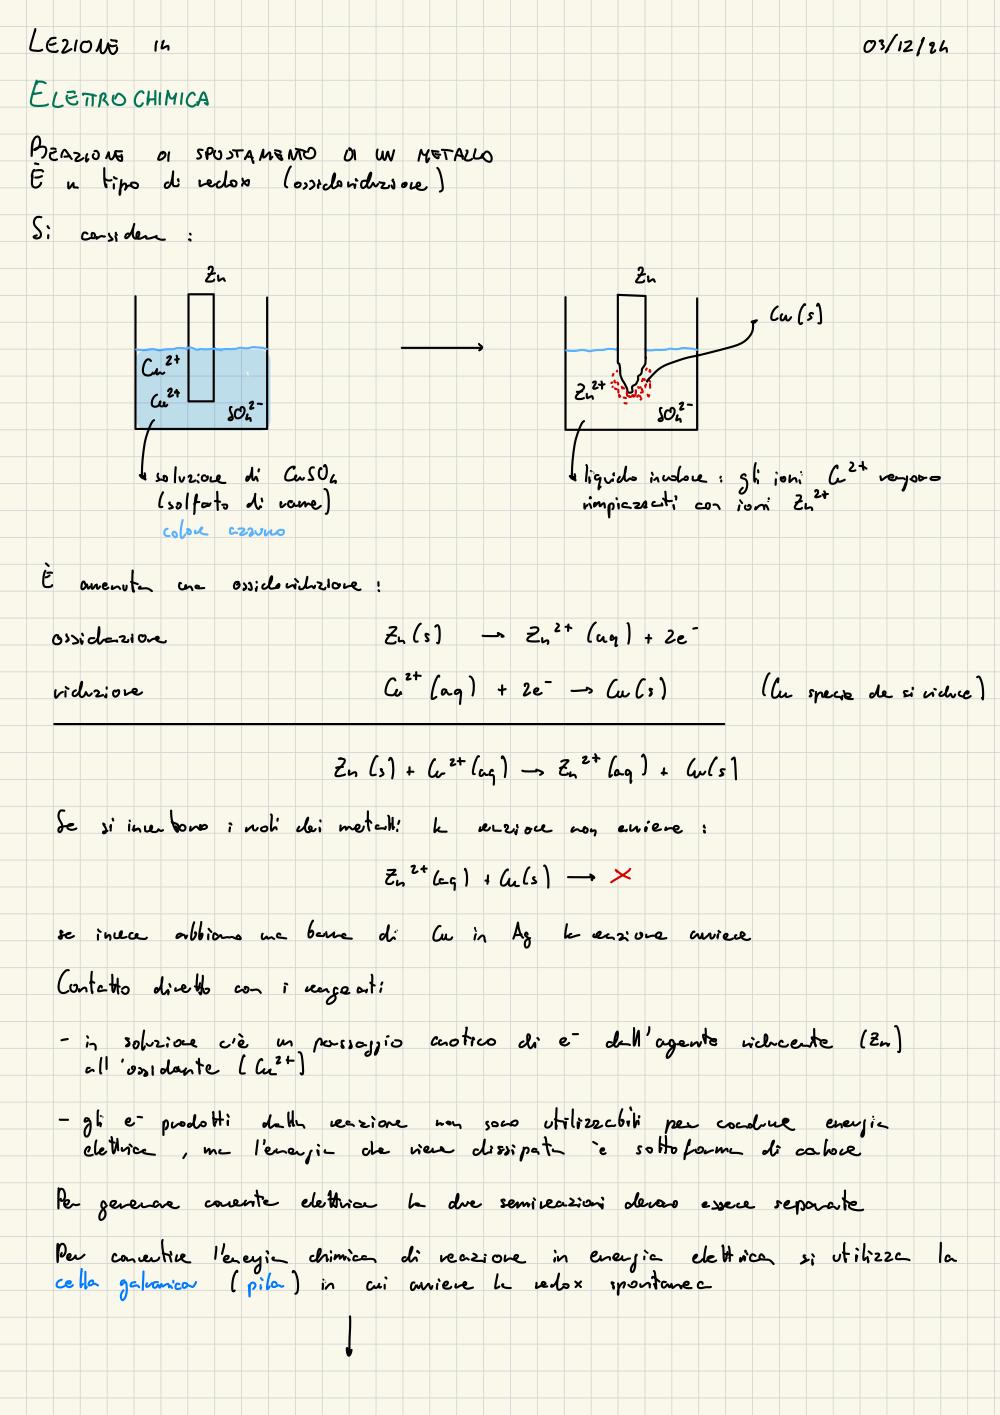 LEZIONE 14
03/12/24
ELETTROCHIMICA
REAZIONE DI SPOSTAMENTO DI UN METALLO
È un tipo di redox (ossidoriduzione)
Si considera :
Zn
Zn
Cu(s)
Cu²⁺
Cu²⁺
SO₄²⁻
Zn²⁺
SO₄²⁻
soluzione di CuSO₄
(solfato di rame)
colore azzurro
liquido incolore : gli ioni Cu²⁺ vengono
rimpiazzati con ioni Zn²⁺
È avvenuta una ossidoriduzione :
ossidazione Zn(s) → Zn²⁺ (aq) + 2e⁻
riduzione Cu²⁺(aq) + 2e⁻ → Cu(s) (Cu specie che si riduce)
Zn(s) + Cu²⁺(aq) → Zn²⁺(aq) + Cu(s)
Se si invertono i ruoli dei metalli la reazione non avviene :
Zn²⁺(aq) + Cu(s) → ×
se invece abbiamo una barra di Cu in Ag la reazione avviene
Contatto diretto con i reagenti
- in soluzione c'è un passaggio caotico di e⁻ dall'agente riducente (Zn)
all'ossidante (Cu²⁺)
- gli e⁻ prodotti dalla reazione non sono utilizzabili per condurre energia
elettrica , ma l'energia che viene dissipata è sottoforma di calore
Per generare corrente elettrica le due semireazioni devono essere separate
Per convertire l'energia chimica di reazione in energia elettrica si utilizza la
cella galvanica (pila) in cui avviene la redox spontanea